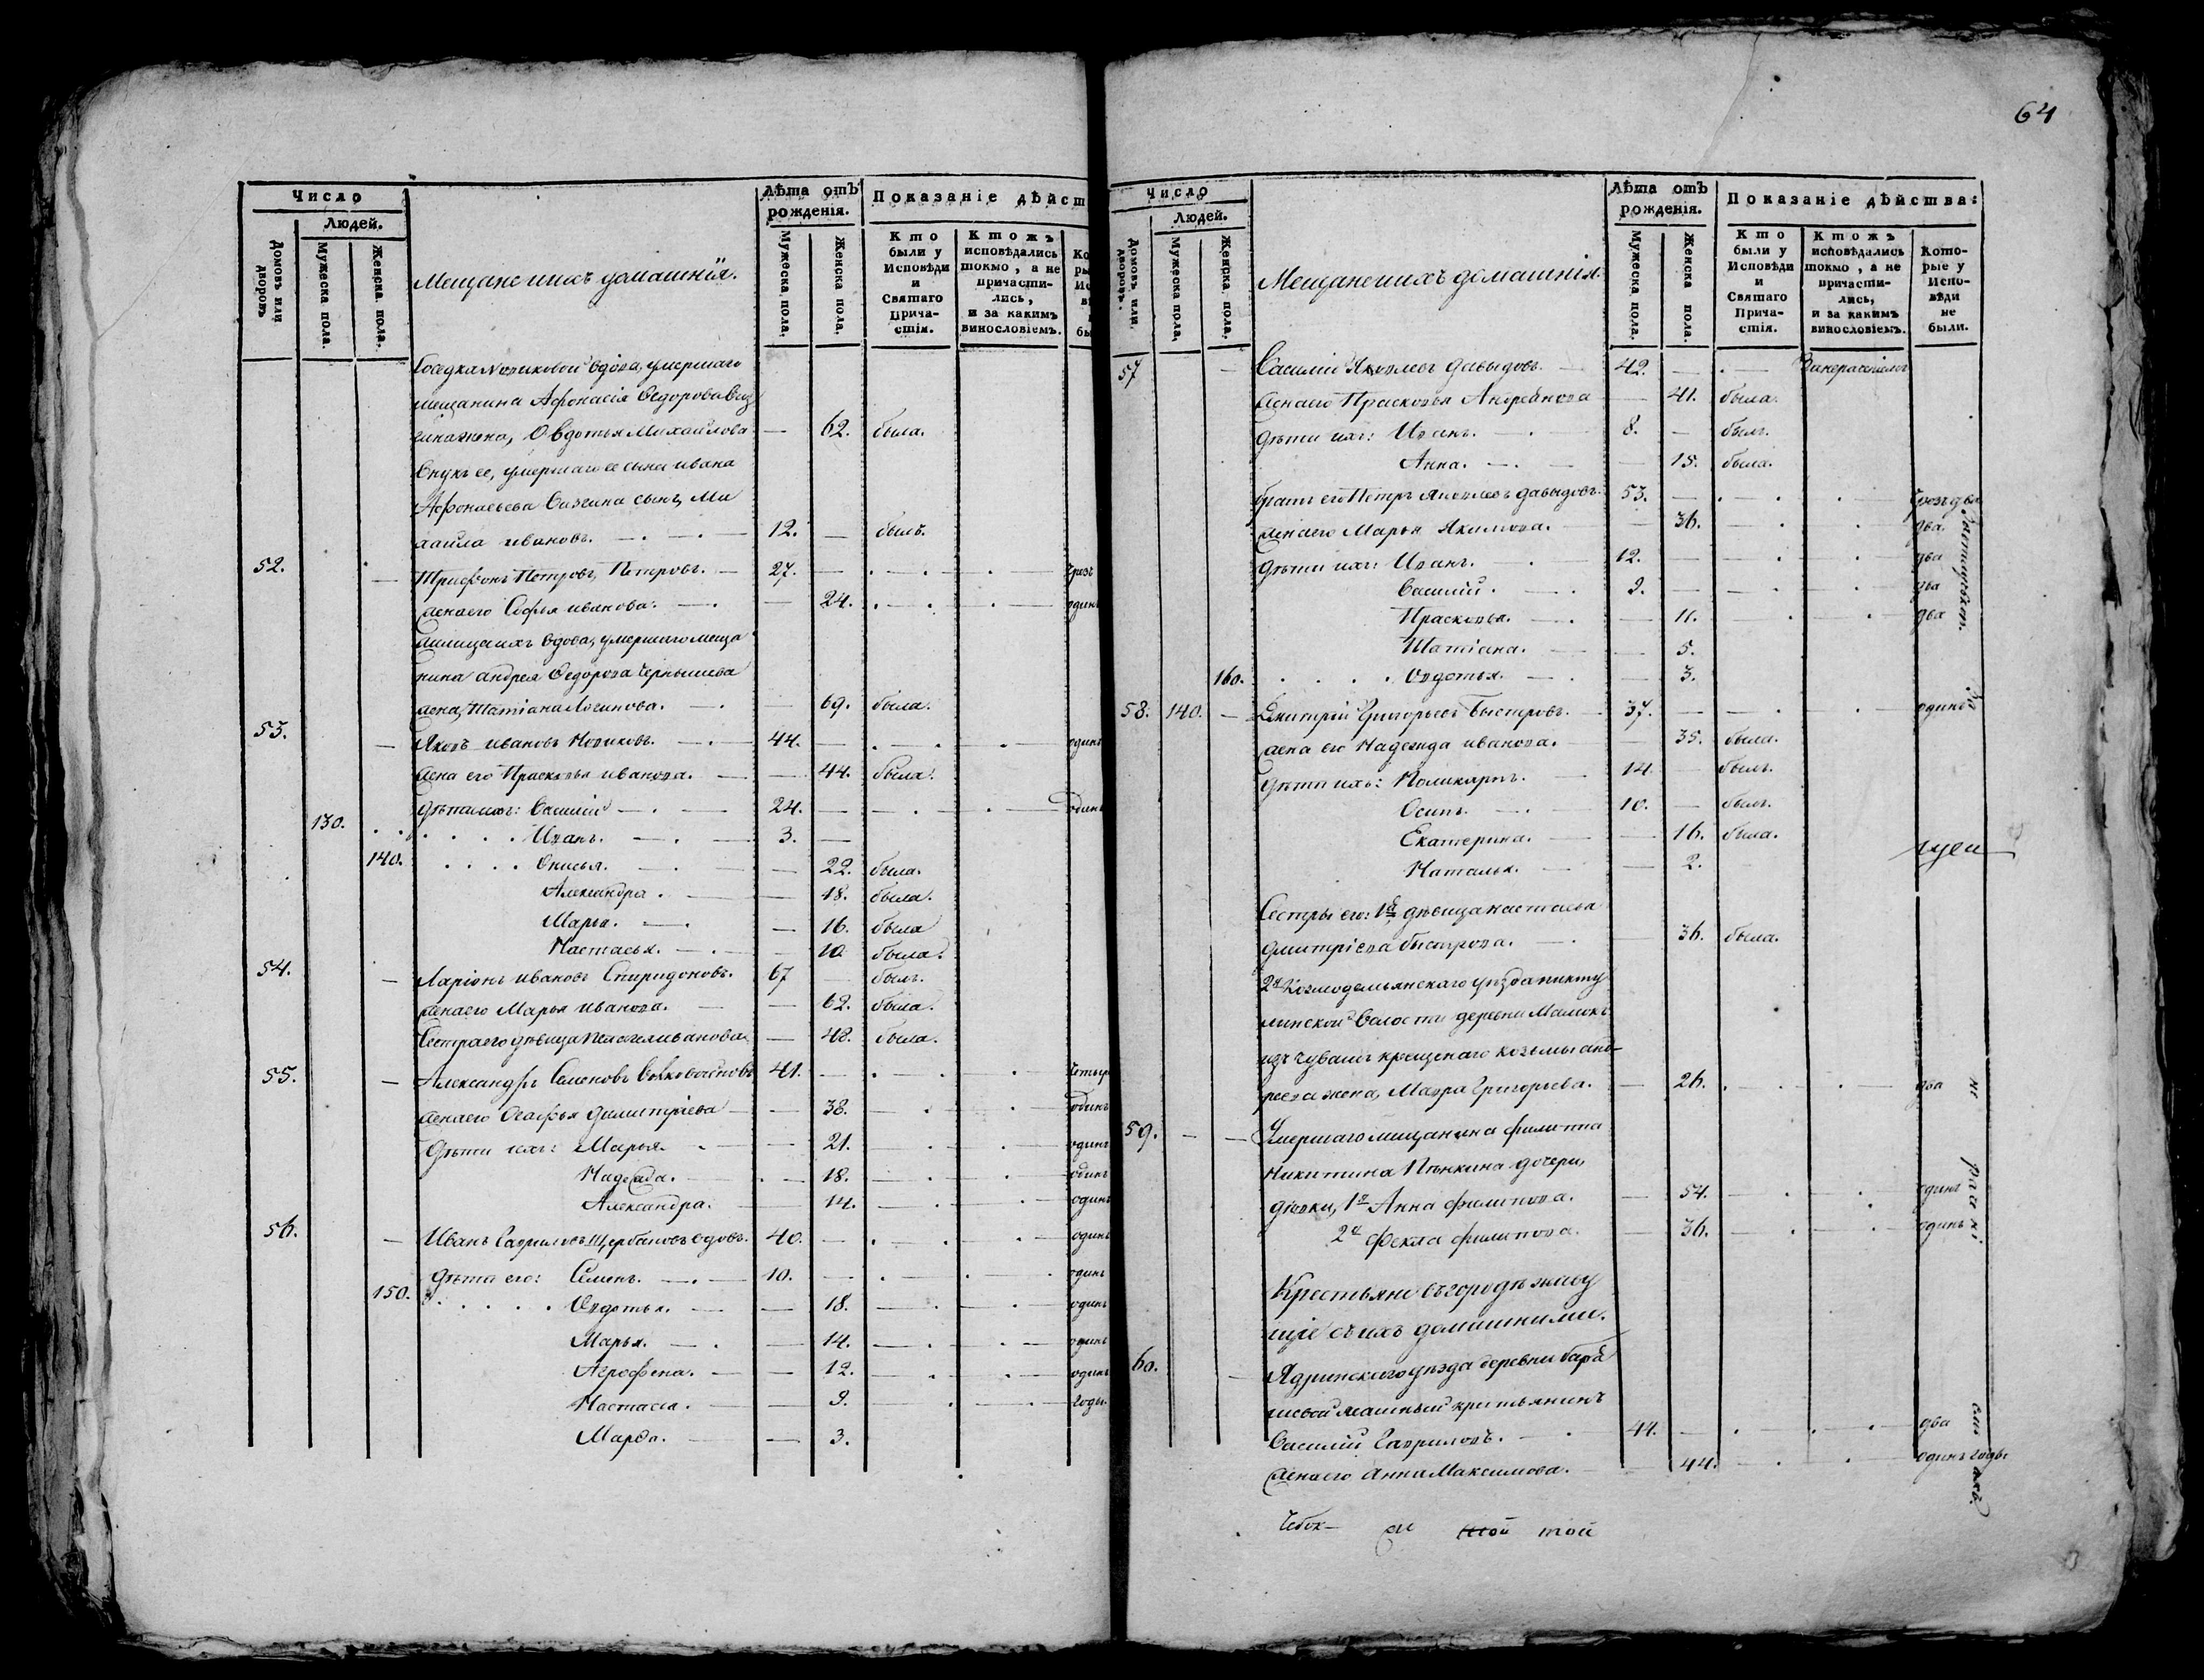 Число
Людей.
Домовъ или дворовъ
Мужеска пола.
Женска пола.
Мещане и ихъ домашнія.
Лѣта отъ рожденія.
Мужеска пола,
Женска пола,
Показаніе дѣйст
Кто были у Исповѣди и Святаго Прича-стія.
Ктожъ исповѣдались токмо, а не причасти-лись, и за какимъ винословіемъ.
вдова умершаго
мещанина Афонасія Ѳедорова
жена, Овдотья Михайлова — 62. была.
Внукъ ее, умершаго ее сына ивана
Афонасьева сынъ, Ми
хаила ивановъ. 12. — былъ.
52. — Трифонъ Петровъ Петровъ. 27. — чрезъ
жена его Софья иванова. — 24. один
ихъ вдова, умершаго меща
нина андрея Ѳедорова Чернышева
жена, Татіана Логинова. — 69. была.
53. — Яковъ ивановъ Новиковъ. 44. — один
жена его Прасковья иванова. — 44. была.
дѣти ихъ: Василий 24. — один
130. Иванъ. 3. —
140. Онисья. — 22. была.
Александра. — 18. была.
Марья. — 16. была
Настасья. — 10 была.
54. — Ларіонъ ивановъ Спиридоновъ. 67 былъ.
жена его Марья иванова. — 62. была.
Сестра его дѣвица Пелагея иванова — 48. была.
55. — Александръ Семеновъ 41. — четыр
жена его Огафья димитріева — 38. один
Дѣти ихъ: Марья. — 21. один
Надежда. — 18. один
Александра. 14. один
56. — Иванъ Гавриловъ Щербаковъ вдовъ. 40. — один
дѣти его: Семенъ. 10. — один
150. Овдотья. — 18. один
Марья. — 14. один
Агрофена. — 12. один
Настасья. — 9. годы.
Марѳа. — 3.
64
Число
Людей.
Домовъ или дворовъ.
Мужеска пола,
Женска пола,
Мещане и ихъ домашнія.
Лѣта отъ рожденія.
Мужеска пола.
Женска пола.
Показаніе дѣйства:
Кто были у Исповѣди и Святаго Прича-стія.
Ктожъ исповѣдались токмо, а не причасти-лись, и за какимъ винословіемъ.
Кото-рые у Испо-вѣди не были.
57 — Василій Яковлевъ давыдовъ. 42. —
жена его Прасковья Андреянова — 41. была.
дѣти ихъ: Иванъ. 8. — былъ.
Анна. — 15. была.
братъ его Петръ Яковлевъ давыдовъ. 53. — чрезъ два
жена его Марья Якимова. — 36. два.
дѣти ихъ: Иванъ. 12. — два
Василій. 9. — два
Прасковья. — 11. два
Татіана. — 5.
160. Овдотья. — 3.
58. 140. — Дмитрій Григорьевъ Быстровъ. 37. — одинъ
жена его Надежда иванова. — 35. была.
дѣти ихъ: Поликарпъ. 14. — былъ.
Осипъ. 10. — былъ.
Екатерина. — 16. была.
Наталья. — 2.
Сестры его: 1я дѣвица настасья
дмитріева быстрова. — 36. была.
2я Козмодемьянскаго уѣзда
волости деревни
изъ чувашъ крещенаго козьмы анд-
реева жена, Мавра Григорьева. — 26. два
59. — — Умершаго мещанина филиппа
Никитина Пенкина дочери,
дѣвки, 1я Анна филипова. — 54. одинъ
2я Фекла филипова. — 36. одинъ
Крестьяне въ городѣ живу
щіе съ ихъ домашними.
60. — Ядринскаго уѣзда деревни
ясашный крестьянинъ
Василій Гавриловъ. 44. — два
жена его анна Максимова. — 44. одинъ годъ.
той